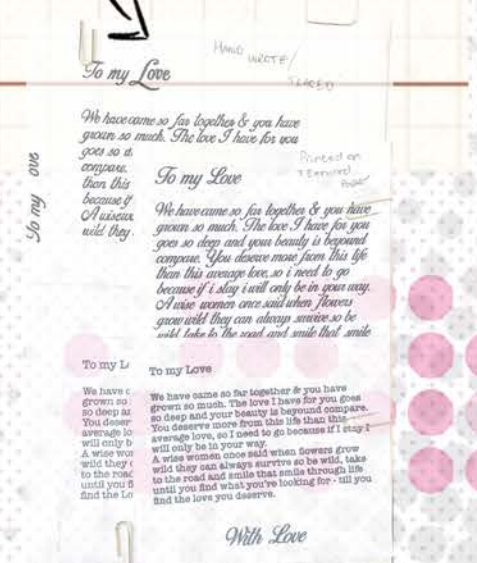 To my Love
HAND WROTE/
TRACED
We have come so far together & you have
grown so much. The love I have for you
goes so d
compare.
than this
because if
A wise wo
wild they
To my ove
To my Love
Printed on
We have came so far together & you have
grown so much. The love I have for you
goes so deep and your beauty is beyound
compare. You deserve more from this life
than this average love, so i need to go
because if i stay i will only be in your way.
A wise women once said when flowers
grow wild they can always survive so be
wild take to the road and smile that smile
To my L
We have c
grown so
so deep an
You deser
average lo
will only b
A wise wo
wild they c
to the road
until you fi
find the Lo
To my Love
We have came so far together & you have
grown so much. The love I have for you goes
so deep and your beauty is beyound compare.
You deserve more from this life than this
average love, so I need to go because if I stay I
will only be in your way.
A wise women once said when flowers grow
wild they can always survive so be wild, take
to the road and smile that smile through life
until you find what you're looking for - till you
find the love you deserve.
With Love